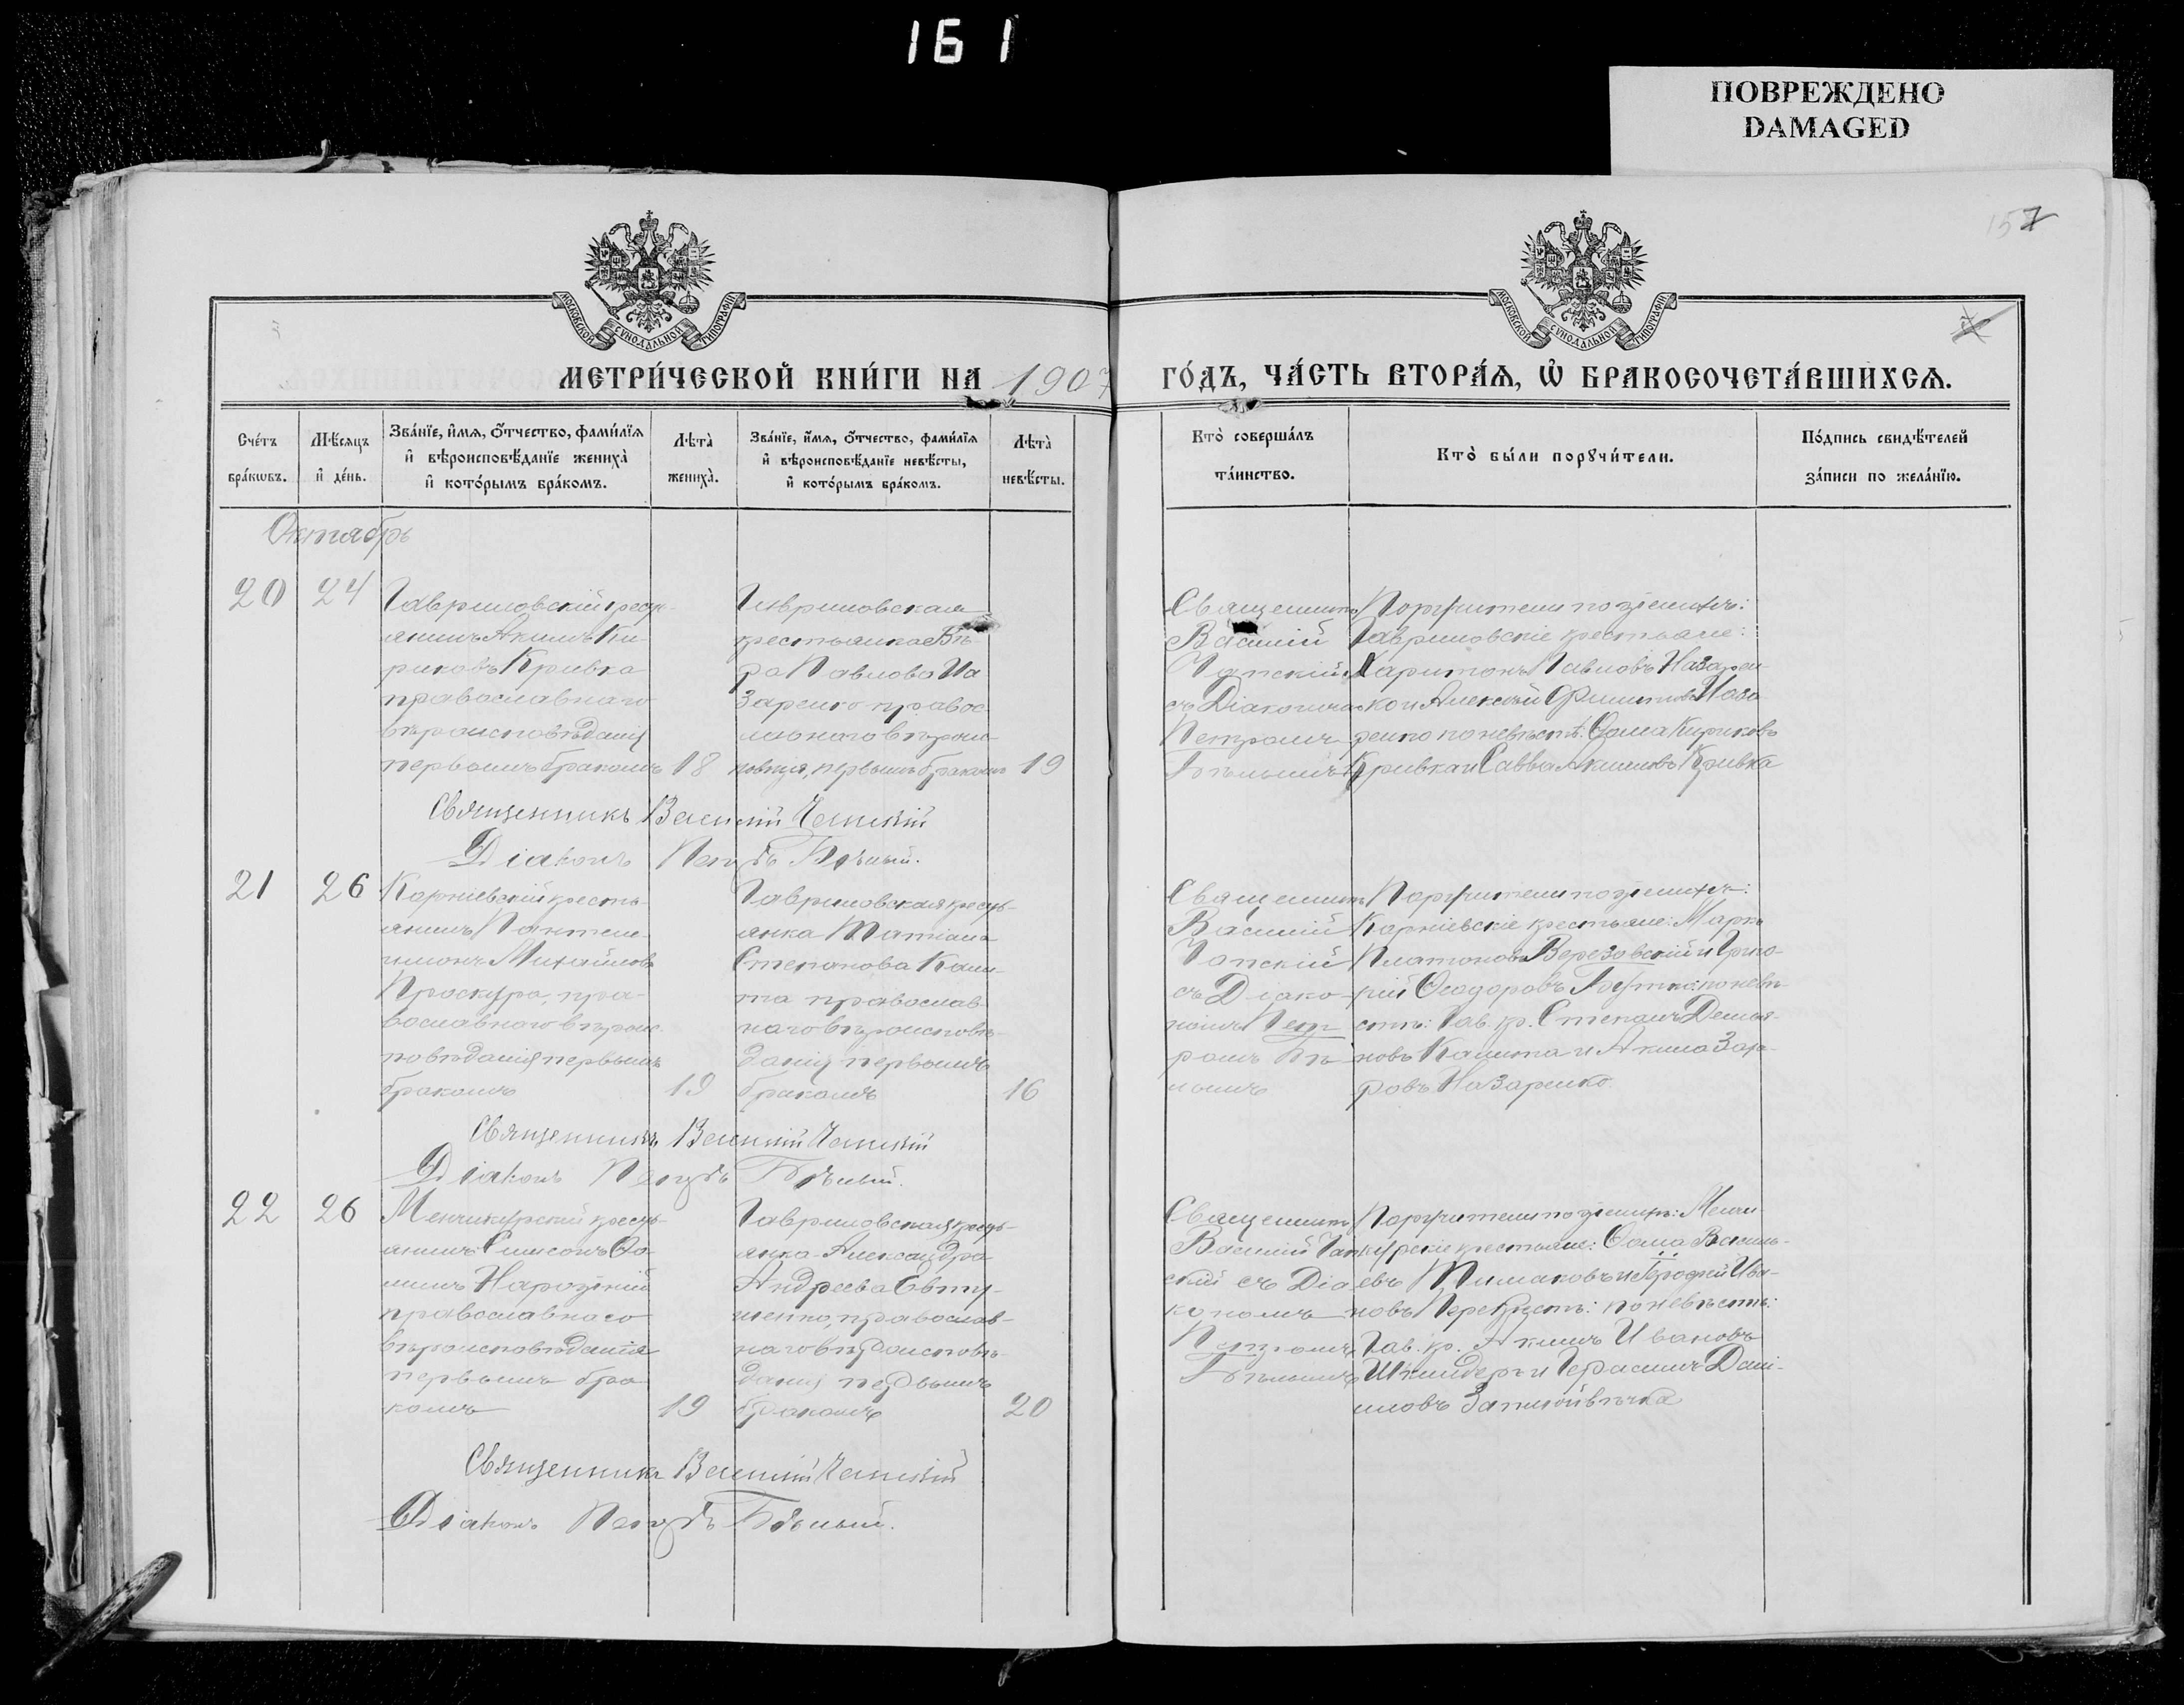 161
ПОВРЕЖДЕНО
DAMAGED
157
МОСКОВСКОЙ СѴНОДАЛЬНОЙ ТИПОГРАФІИ
МОСКОВСКОЙ СѴНОДАЛЬНОЙ ТИПОГРАФІИ
МЕТРИ́ЧЕСКОЙ КНИ́ГИ НА 1907 ГО́ДЪ, ЧА́СТЬ ВТОРА́Ѧ, Ѽ БРАКОСОЧЕТА́ВШИХСѦ.
Сче́тъ бра́кѡвъ.
Мѣ́сѧцъ и҆ де́нь.
Зва́нїе, и҆́мѧ, ѻ҆́тчество, фами́лїѧ
и҆ вѣроисповѣ́данїе жениха̀
и҆ кото́рымъ бра́комъ.
Лѣта̀ жениха̀.
Зва́нїе, и҆́мѧ, ѻ҆́тчество, фами́лїѧ
и҆ вѣроисповѣ́данїе невѣ́сты,
и҆ кото́рымъ бра́комъ.
Лѣта̀ невѣ́сты.
Кто̀ соверша́лъ та́инство.
Кто̀ бы́ли порꙋчи́тели.
По́дпись свидѣ́телей
за́писи по жела́нїю.
Октябрь
20
24
Гавриловскій кресть-
янинъ Акимъ Ки-
риковъ Кривка
православнаго
вѣроисповѣданія
первымъ бракомъ
18
Гавриловская
крестьянка Вѣ-
ра Павлова На
заренко правос-
лавнаго вѣроис-
повѣдія, первымъ бракомъ
19
Священникъ
Василій
Чапскій
съ Діакономъ
Петромъ
Бѣлымъ
Поручители по женихѣ:
Гавриловскіе крестьяне:
Харитонъ Павловъ Назарен-
ко и Алексѣй Филиповъ Наза-
ренко по невѣстѣ: Ѳома Кириковъ
Кривка и Савва Акимовъ Кривка
Священникъ Василій Чапскій
Діаконъ Петръ Бѣлый.
21
26
Корніевскій кресть-
янинъ Пантеле-
имонъ Михайловъ
Проскура, пра-
вославнаго вѣроис-
повѣданія первымъ
бракомъ
19
Гавриловская кресть-
янка Татіана
Степанова Кали-
та православ-
наго вѣроисповѣ-
данія первымъ
бракомъ
16
Священникъ
Василій
Чапскій
съ Діако-
номъ Пет
ромъ Бѣ
лымъ
Поручители по женихѣ:
Корніевскіе крестьяне: Маркъ
Платоновъ Верезовскій и Григо-
рій Ѳеодоровъ по невѣ-
стѣ: Гав. кр. Степанъ Демья-
новъ Калита и Акима Заха-
ровъ Назаренко.
Священникъ Василій Чапскій
Діаконъ Петръ Бѣлый.
22
26
Менчикурскій кресть-
янинъ Симеонъ Ѳо-
минъ Нарожній
православнаго
вѣроисповѣданія
первымъ бра-
комъ
19
Гавриловская кресть-
янка Александра
Андреева Евту-
шенко, православ-
наго вѣроисповѣ-
данія первымъ
бракомъ
20
Священникъ
Василій Чап
скій съ Діа
кономъ
Петромъ
Бѣлымъ
Поручители по женихѣ: Менчи-
курскіе крестьяне: Ѳома Василь-
евъ Тимаковъ и Ерофей Ива-
новъ Перехрестъ: по невѣстѣ:
Гав. кр. Акимъ Ивановъ
Шкиндеръ и Герасимъ Дани-
иловъ
Священникъ Василій Чапскій
Діаконъ Петръ Бѣлый.